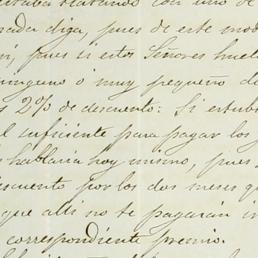 estaba tratando con uno de
nada diga, pues de este mod
si, pues si estos Señores
ninguno o muy pequeño de
2% de descuento: Si estub
el suficiente para pagar los
hablaria hoy mismo, pues
descuento por los dos meses qu
que alli no te pagarán in
correspondiente premio.